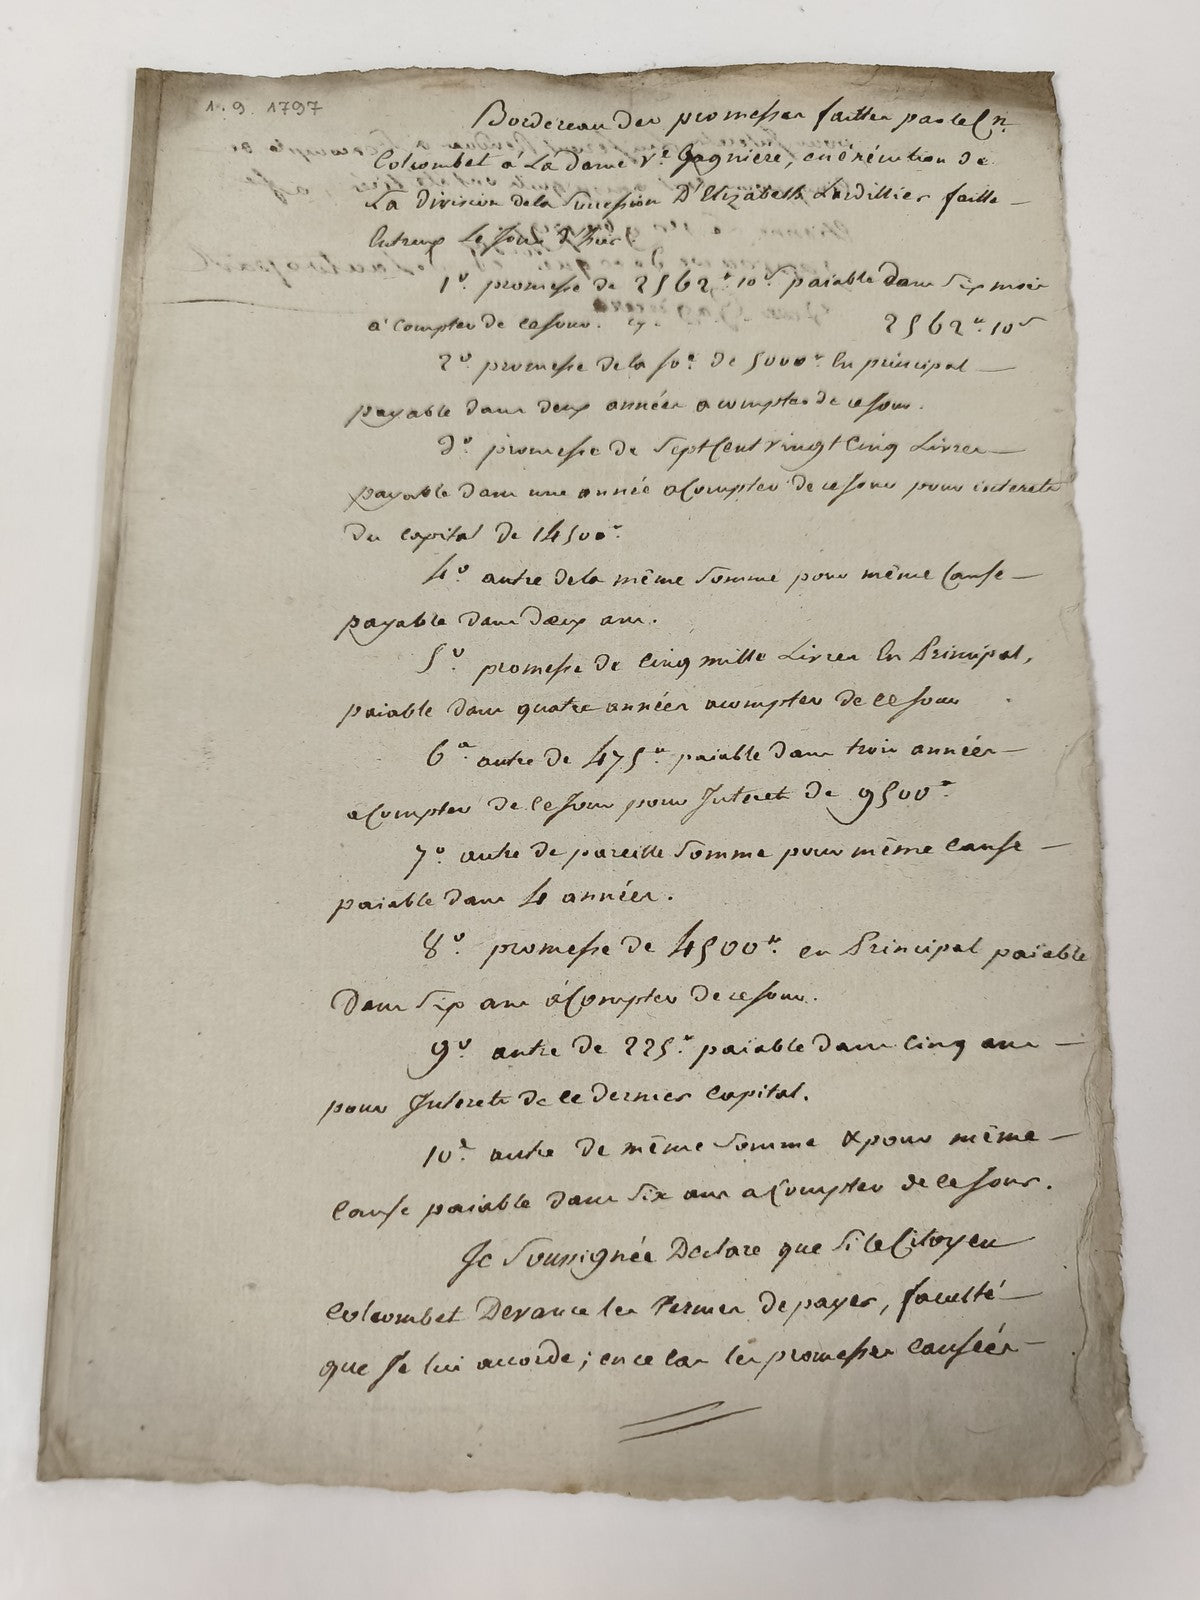 1. 9. 1797
Bordereau des promesses faittes par le Cn.
Colcombet à La dame Ve. Gagniere, en exécution de
La division de la Succession D'Elizabeth Lardillier faitte
Entreux Le jour d'hier
1o. promesse de 2562tt. 10s. paiable dans six mois
a compter de ce jour. cy. 2562tt. 10s
2o. promesse de la so.e de 5000tt. En principal
payable dans deux années a compter de ce jour.
3o. promesse de Sept Cent vingt Cinq Livres
payable dans une année a Compter de ce jour pour interets
du capital de 14500tt.
4o. autre de la même Somme pour même Cause
payable dans deux ans.
5o. promesse de Cinq mille Livres En Principal,
paiable dans quatre années a compter de ce jour
6o autre de 475tt. paiable dans trois années
a Compter de ce Jour pour Interet de 9500tt.
7o. autre de pareille Somme pour même cause
paiable dans 4 années.
8o. promesse de 4500tt. en Principal paiable
Dans Six ans à Compter de ce jour.
9o. autre de 225tt. paiable dans Cinq ans
pour Interets de ce dernier Capital.
10o. autre de même Somme & pour même
Cause paiable dans Six ans a Compter de ce jour.
Je Soussignée Déclare que Si le Citoyen
Colcombet Devance les Termes de payer, faculté
que Je lui accorde; en ce cas les promesses causées